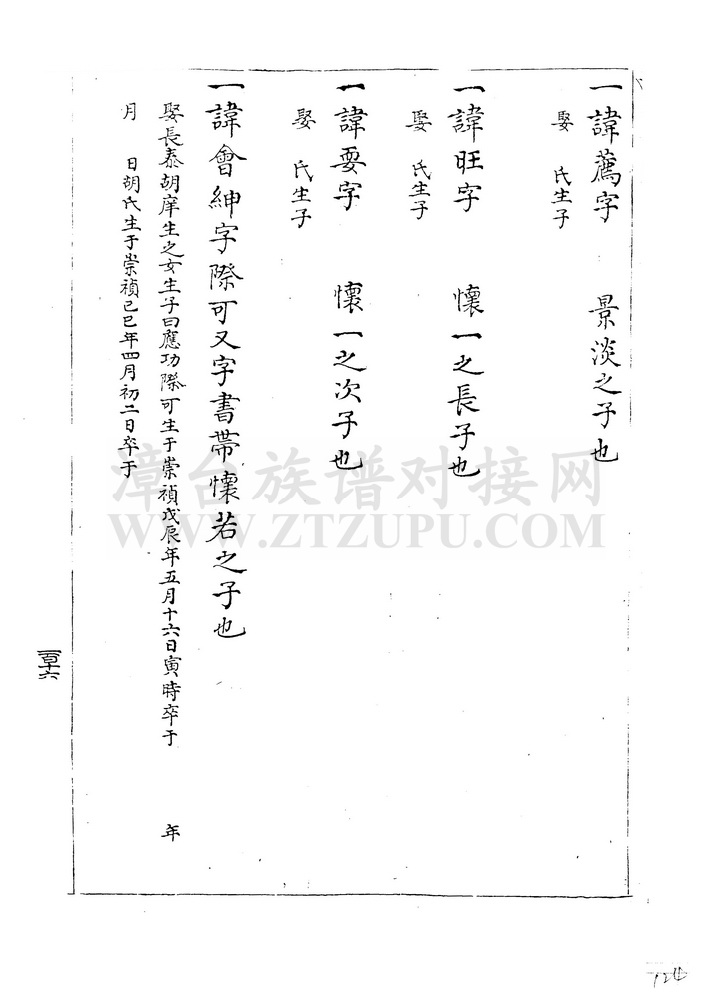 一諱薦字 景淡之子也
娶 氏生子
一諱旺字 懷一之長子也
娶 氏生子
一諱耍字 懷一之次子也
娶 氏生子
一諱會紳字際可又字書帶懷若之子也
娶長泰胡庠生之女生子曰應功際可生于崇禎戊辰年五月十六日寅時卒于 年
月 日胡氏生于崇禎己巳年四月初二日卒于
一百十六
漳台族谱对接网
WWW.ZTZUPU.COM
124